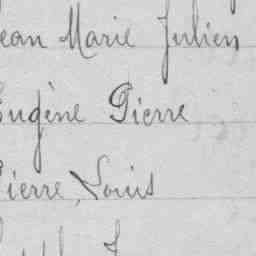 Jean Marie Julien
Eugène Pierre
Pierre Louis